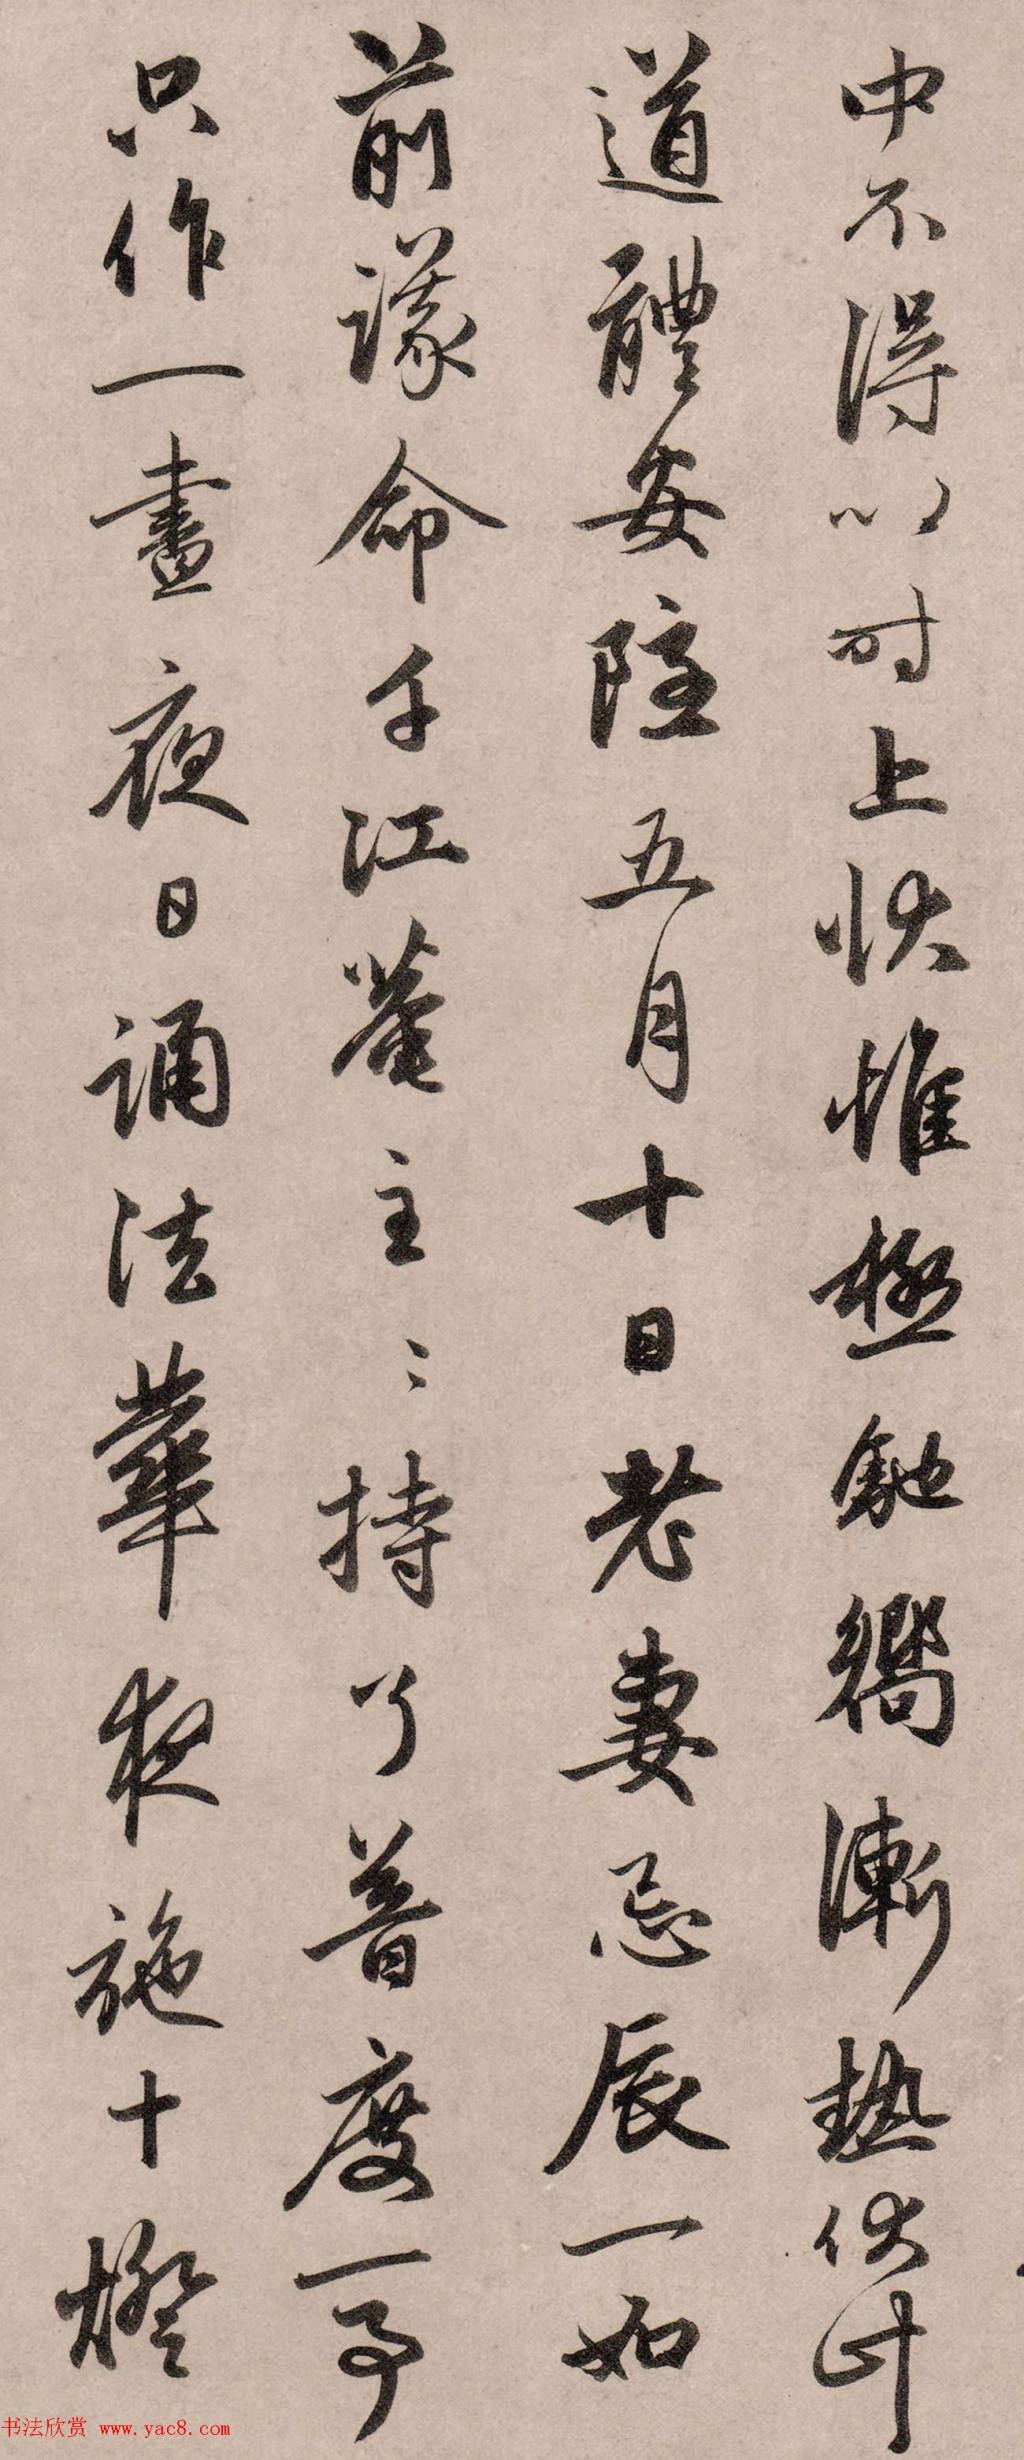 中不得以时上状惟極馳嚮漸热伏計
道體安隱五月十日老妻忌辰一如
前議命千江菴主〻持了普度一事
只作一晝夜日誦法華夜施十燈
书法欣赏 www.yac8.com